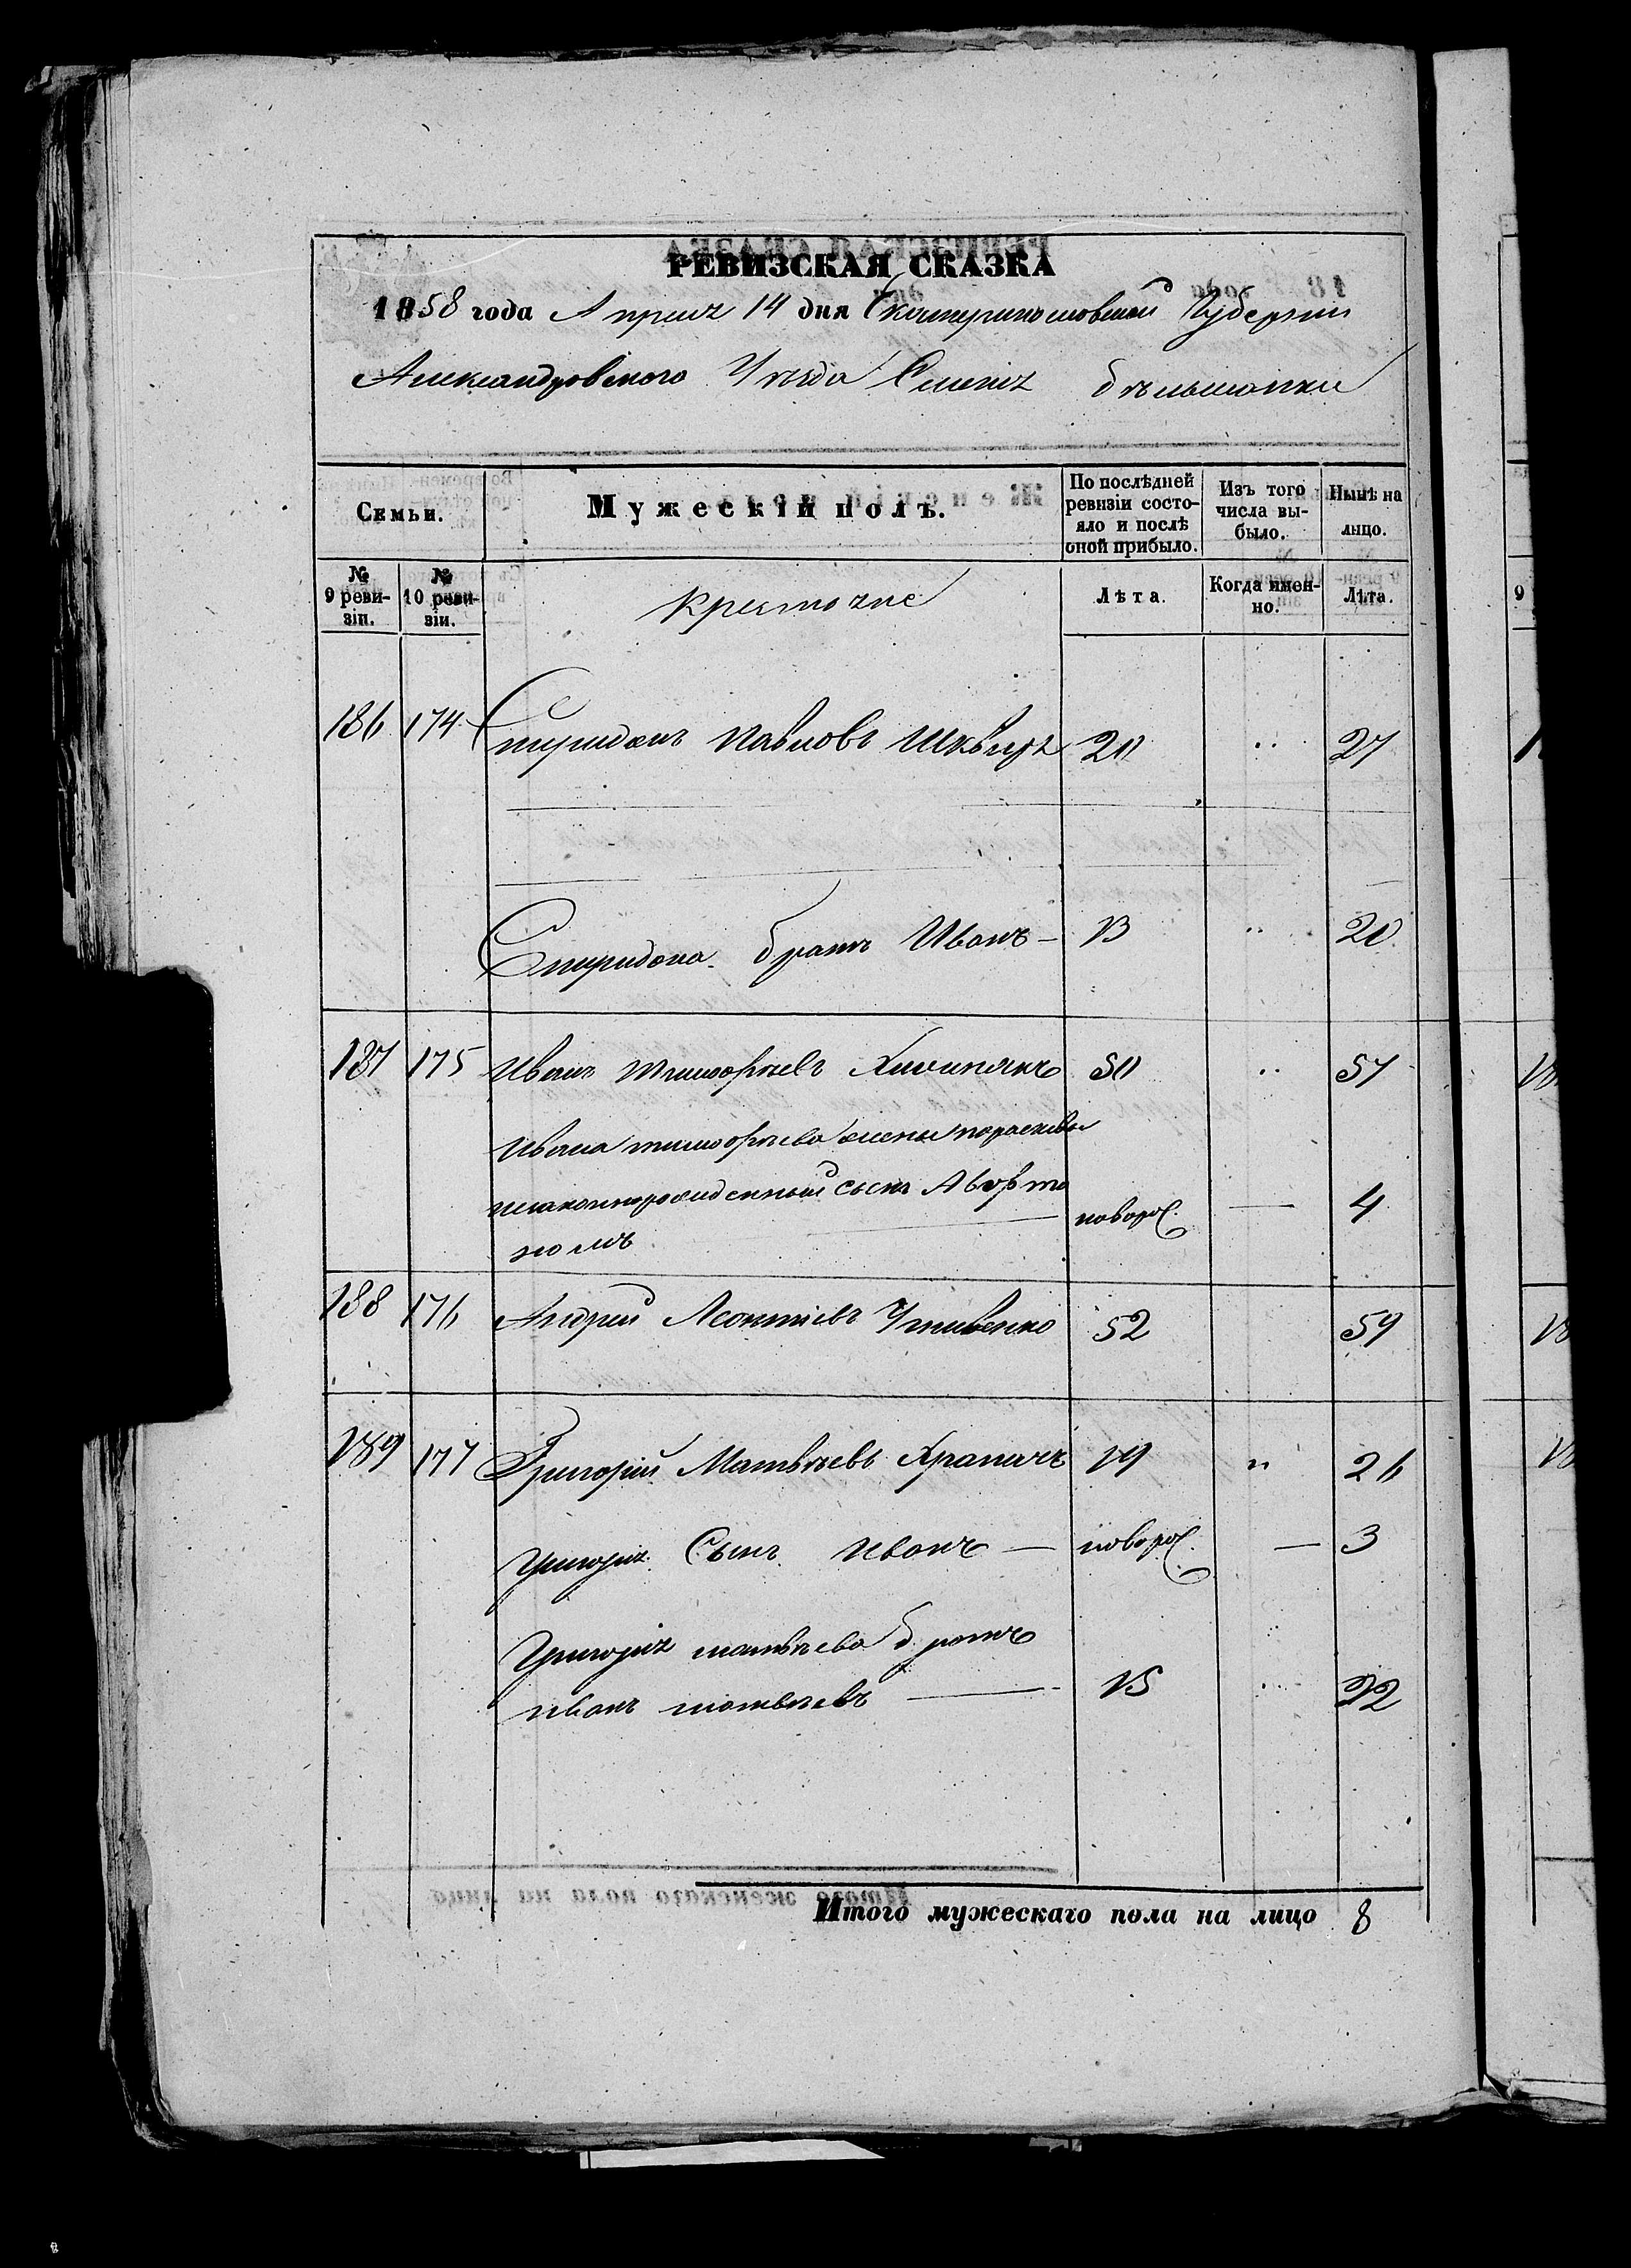 РЕВИЗСКАЯ СКАЗКА
1858 года Апреля 14 дня Екатеринославской Губернии
Александровского Уезда Селенія Бѣльманки
Семьи.
Мужескій полъ.
По послѣдней ревизіи состояло и послѣ оной прибыло.
Изъ того числа выбыло.
Нынѣ на лицо.
№ 9 ревизіи.
№ 10 ревизіи.
Крестьяне
Лѣта.
Когда именно.
Лѣта.
186 174 Спиридонъ Павловъ Шквыря 20 " 27
Спиридона братъ Иванъ — 13 " 20
187 175 Иванъ Тимофѣевъ 50 " 57
Ивана Тимофѣева жены Параскевы
незаконнорожденный сынъ Авфто
номъ — новорож. — 4
188 176 Андрей Леонтіевъ 52 59
189 177 Григорій Матвѣевъ Храпачъ 19 " 26
Григорія Сынъ Иванъ — новорож. — 3
Григорія Матвѣева братъ
Иванъ Матвѣевъ — 15 " 22
Итого мужескаго пола на лицо 8